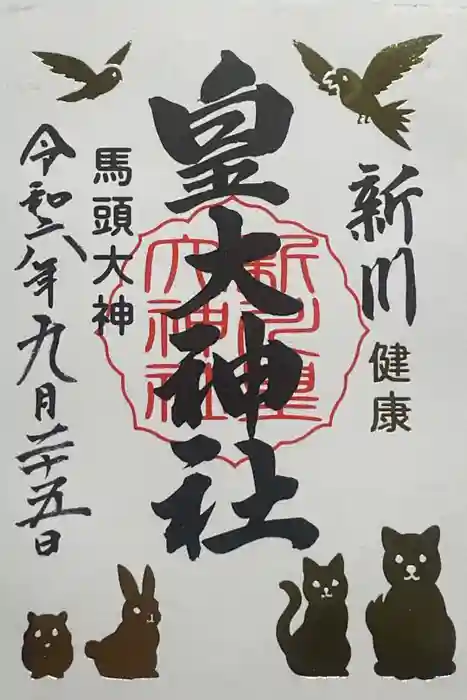 新川
健康
皇大神社
新川皇大神社
馬頭大神
令和六年九月二十五日